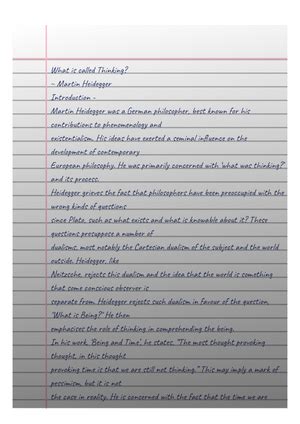 What is called Thinking?
- Martin Heidegger
Introduction -
Martin Heidegger was a German philosopher, best known for his
contributions to phenomenology and
existentialism. His ideas have exerted a seminal influence on the
development of contemporary
European philosophy. He was primarily concerned with 'what was thinking?'
and its process.
Heidegger grieves the fact that philosophers have been preoccupied with the
wrong kinds of questions
since Plato, such as what exists and what is knowable about it? These
questions presuppose a number of
dualisms, most notably the Cartesian dualism of the subject and the world
outside. Heidegger, like
Neitzsche, rejects this dualism and the idea that the world is something
that some conscious observer is
separate from. Heidegger rejects such dualism in favour of the question,
'What is Being?' He then
emphasises the role of thinking in comprehending the being.
In his work, 'Being and Time', he states, "The most thought provoking
thought, in this thought
provoking time is that we are still not thinking." This may imply a mark of
pessimism, but it is not
the case in reality. He is concerned with the fact that the time we are